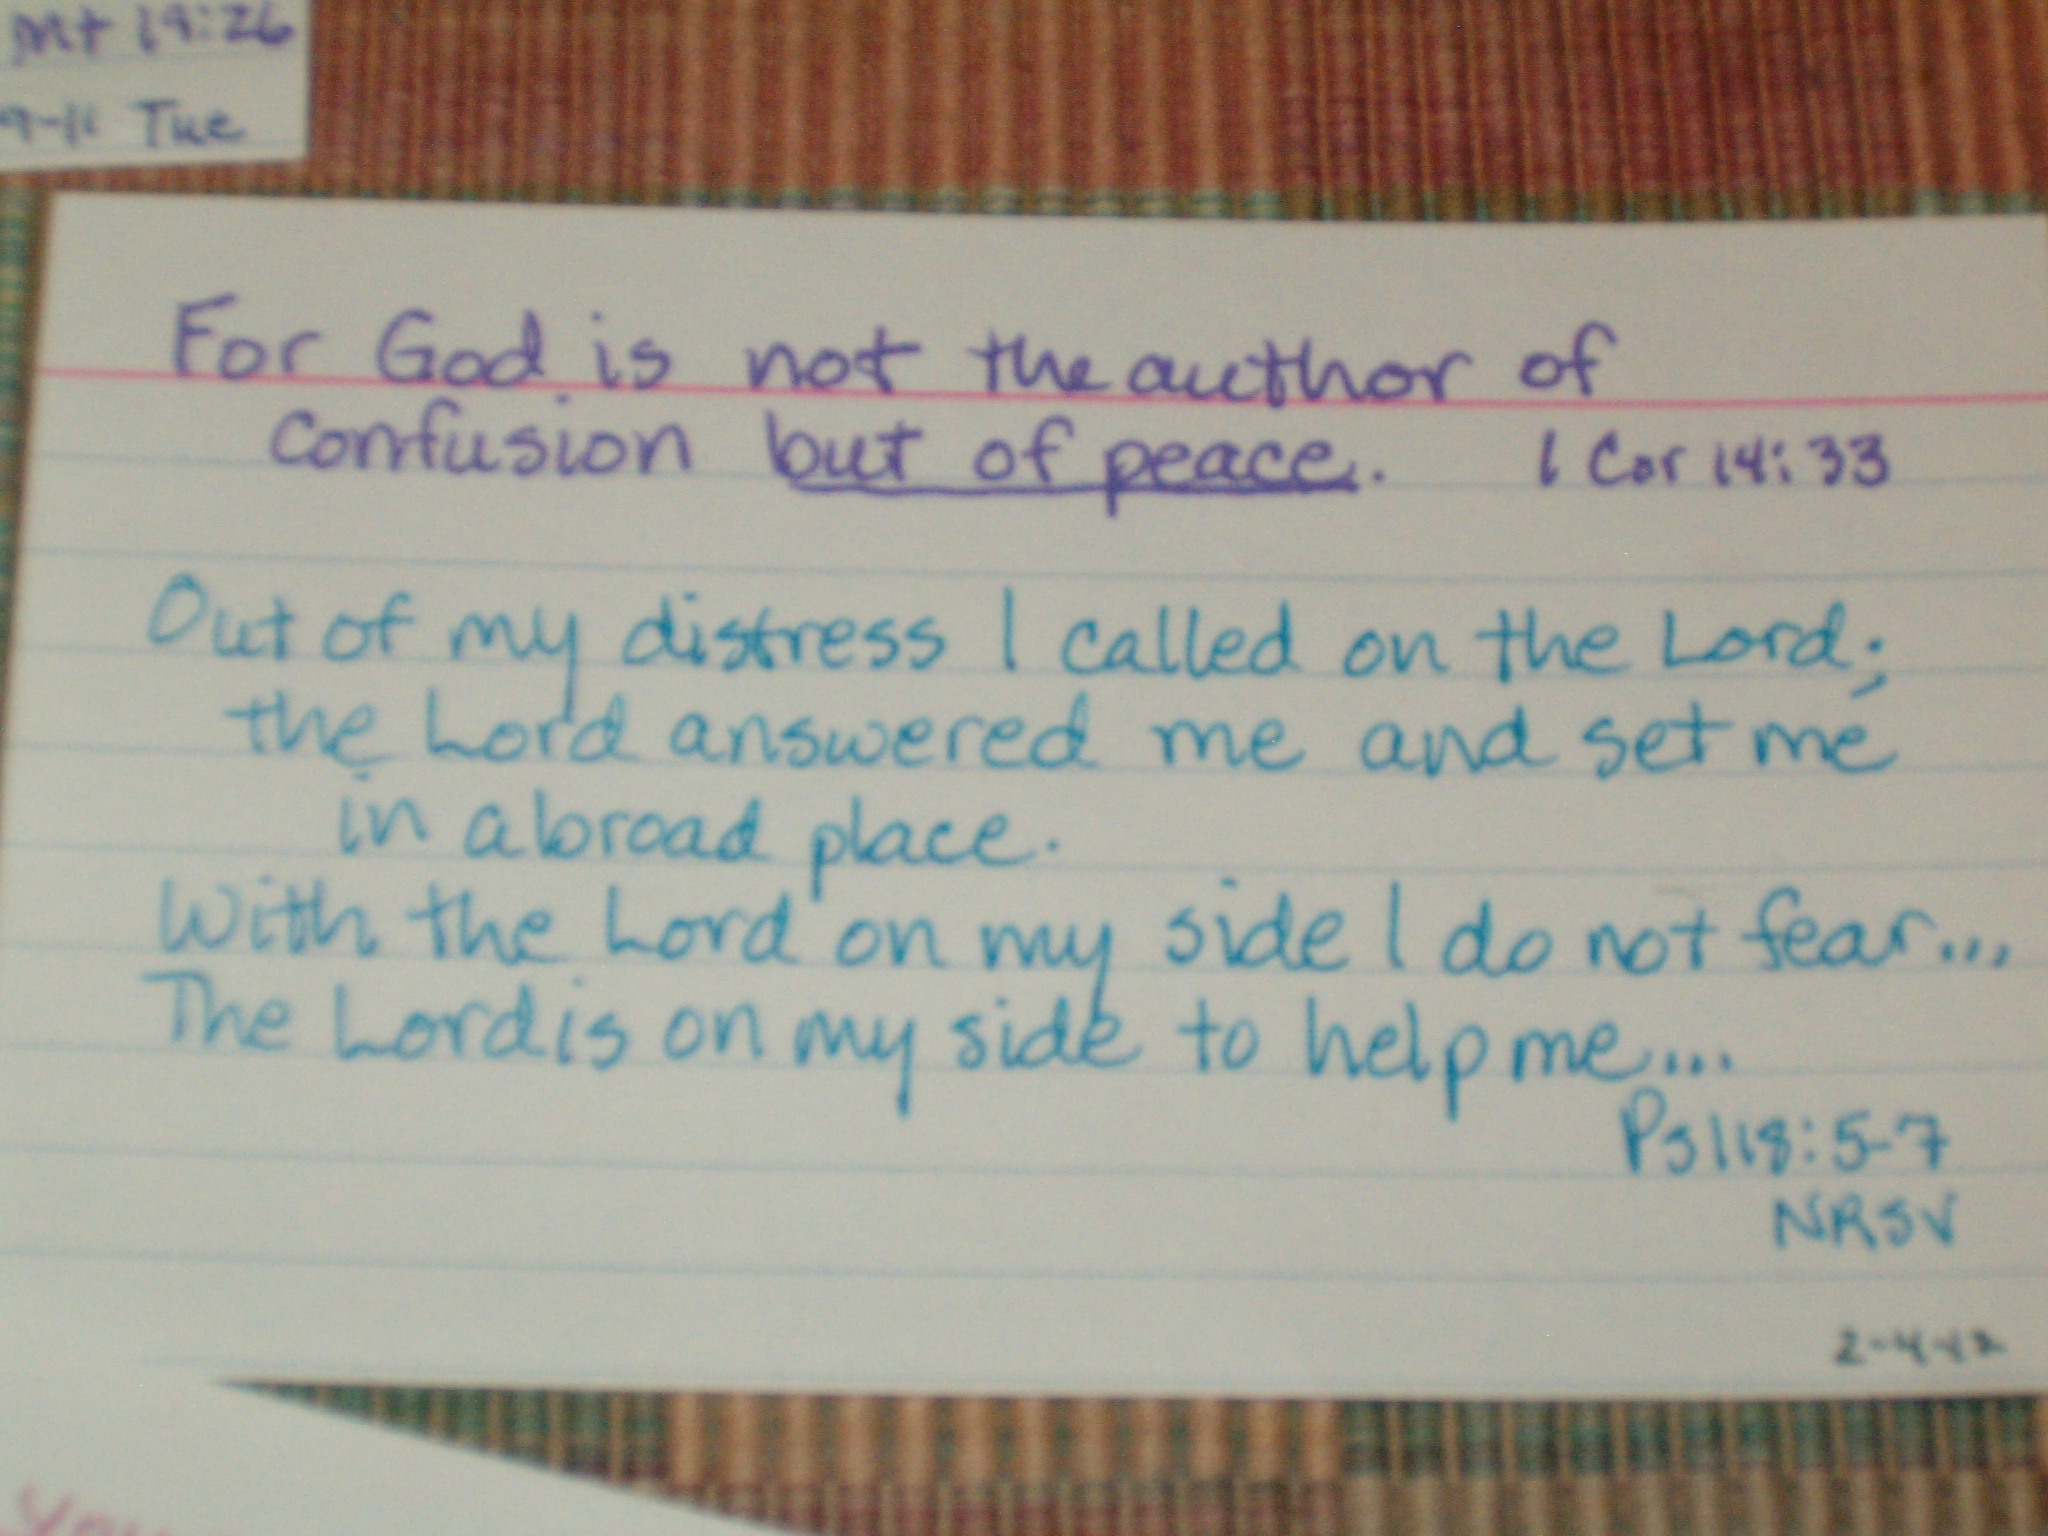 Mt 19:26
9-11 Tue
For God is not the author of
confusion but of peace. 1 Cor 14:33
Out of my distress I called on the Lord;
the Lord answered me and set me
in a broad place.
With the Lord on my side I do not fear...
The Lord is on my side to help me...
Ps 118:5-7
NRSV
2-4-12